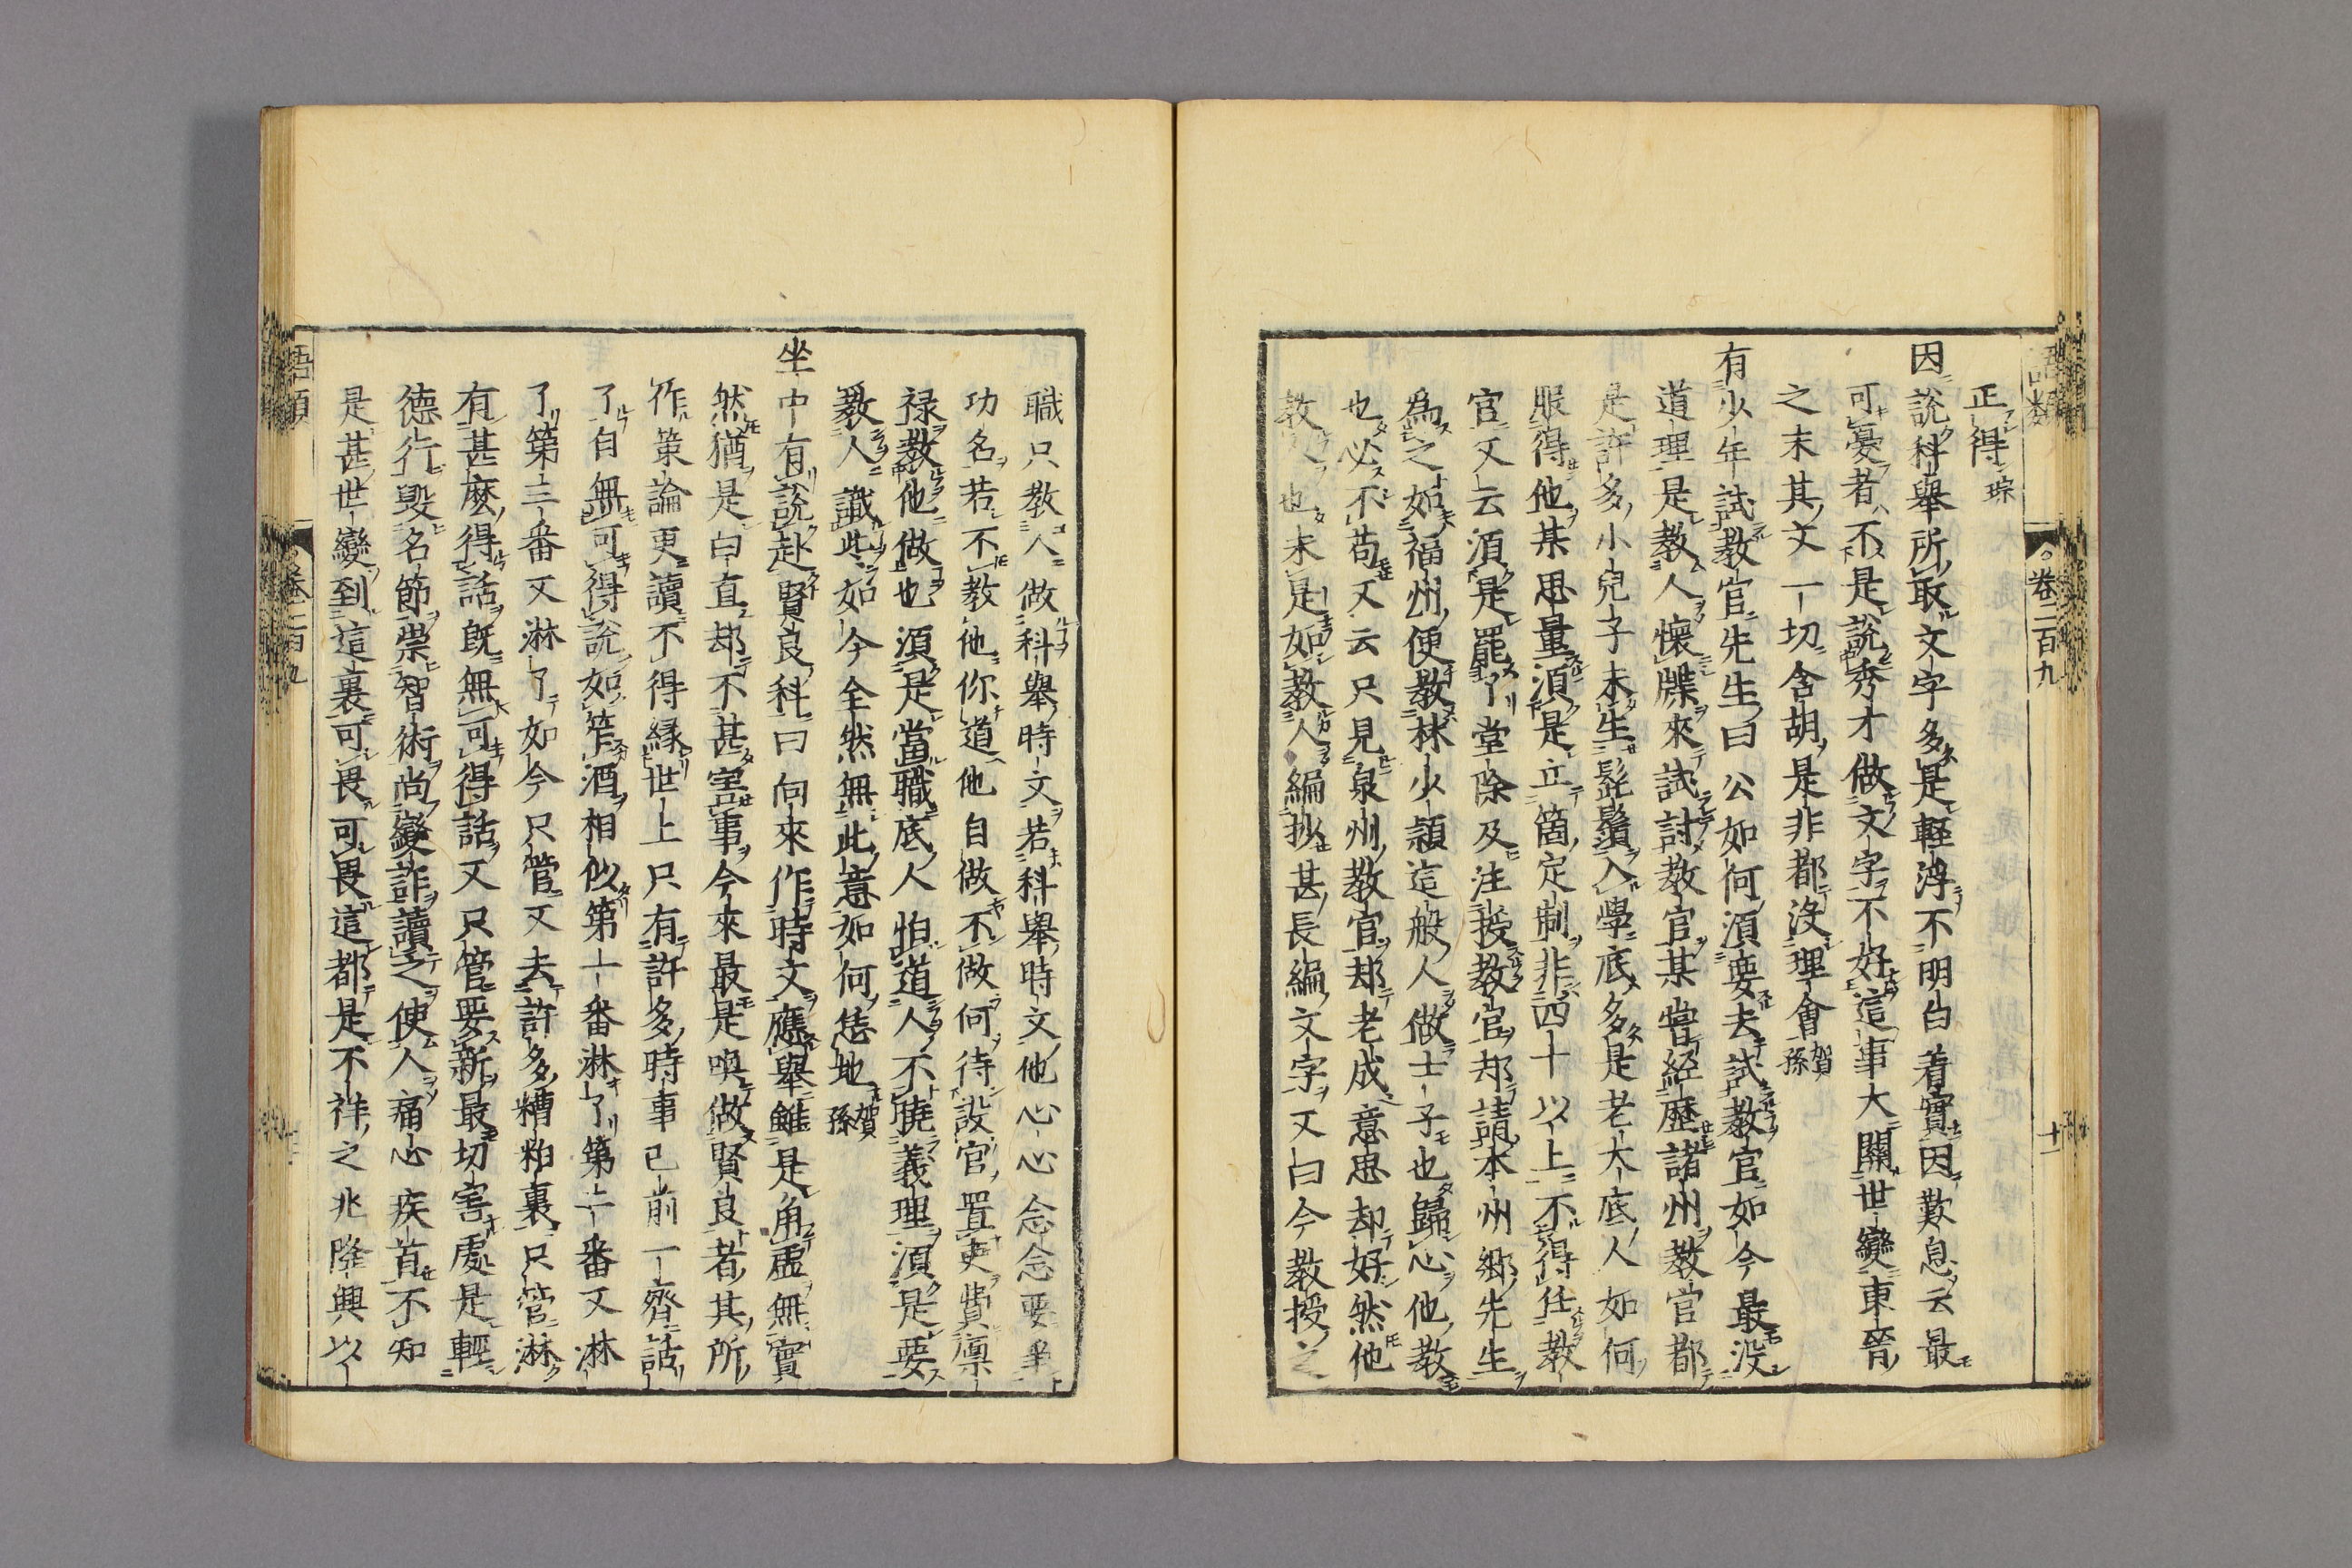 語類　卷一百九　十一
正得琮
因說科舉所取文字多是輕浮不明白着實因歎息云最
可憂者不是說秀才做文字不好這事大關世變東晉
之末其文一切含胡是非都沒理會賀孫
有少年試教官先生曰公如何須要去試教官如今最沒
道理是教人懷牒來試討教官某嘗經歷諸州教官都
是許多小兒子未生髭鬚入學底多是老大底人如何
服得他某思量須是立箇定制非四十以上不得任教
官又云須是罷了堂除及注授教官却請本州鄉先生
為之如福州便教林少頴這般人做士子也歸心他教
也必不苟又云只見泉州教官却老成意思却好然他
教人也未是如教人編抄甚長編文字又曰今教授之
職只教人做科舉時文若科舉時文他心心念念要爭
功名若不教他你道他自做不做何待設官置吏費廩
祿教他做也須是當職底人怕道人不曉義理須是要
教人識些如今全然無此意如何恁地賀孫
坐中有說赴賢良科曰向來作時文應舉雖是角虛無實
然猶是白直却不甚害事今來最是喚做賢良者其所
作策論更讀不得緣世上只有許多時事已前一齊話
了自無可得說如笮酒相似第一番淋了第二番又淋
了第三番又淋了如今只管又去許多糟粕裏只管淋
有甚麼得話旣無可得話又只管要新最切害處是輕
德行毀名節崇智術尚變詐讀之使人痛心疾首不知
是甚世變到這裏可畏可畏這都是不祥之兆隆興以
語類　卷一百九